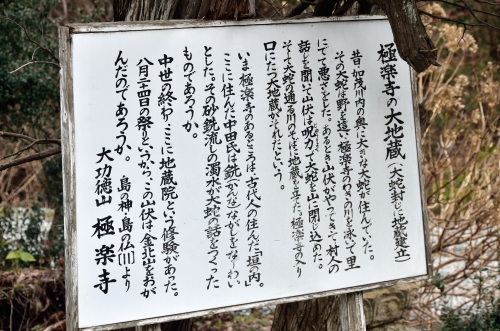 極楽寺の大地蔵(大蛇封じと地蔵建立)
昔、加茂川内の奥に大きな大蛇が住んでいた。
その大蛇は野を這い、極楽寺のわきの川を泳いで里
にでて悪さをした。あるとき山伏がやってきて、村人の
話を聞いて山伏は呪力で大蛇を山に閉じ込めた。
そして大蛇の通る川のそばに地蔵を立てた。極楽寺の入り
口にたつ地蔵がそれだという。
いま極楽寺のあるところは、古代人の住んだ「垣の内」。
ここに住んだ中田氏は鉄(かんな)ながしをなりわい
とした。その砂鉄流しの濁水が大蛇の話をつくった
ものであろうか。
中世の終わり、ここに地蔵院という修験があった。
八月二十四日の祭りというから、この山伏は金北山をおが
んだのであろうか。 島の神・島の仏(川)より
大功徳山 極楽寺